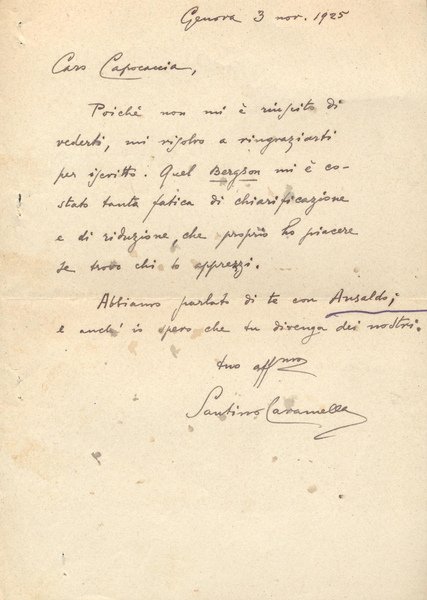 Genova 3 nov. 1925
Caro Capocaccia,
Poiché non mi è riuscito di
vederti, mi risolvo a ringraziarti
per iscritto. Quel Bergson mi è co-
stato tanta fatica di chiarificazione
e di riduzione, che proprio ho piacere
se trovo chi lo apprezzi.
Abbiamo parlato di te con Ansaldo;
e anch' io spero che tu divenga dei nostri.
tuo affmo
Santino Caramella